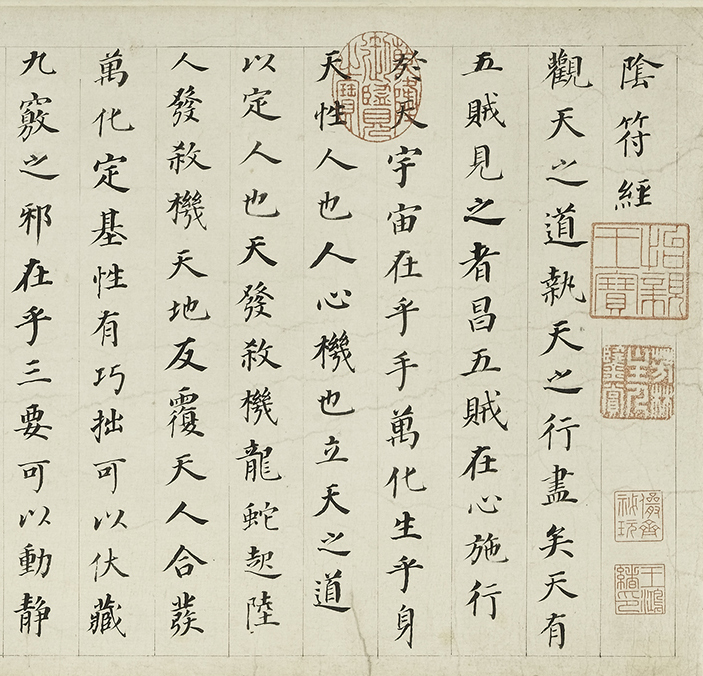 陰符經
怡親王寶
芳林主人鑒賞
儼齋祕玩
王鴻緒印
觀天之道執天之行盡矣天有
五賊見之者昌五賊在心施行
於天宇宙在乎手萬化生乎身
乾隆御覽之寶
天性人也人心機也立天之道
以定人也天發殺機龍蛇起陸
人發殺機天地反覆天人合發
萬化定基性有巧拙可以伏藏
九竅之邪在乎三要可以動靜